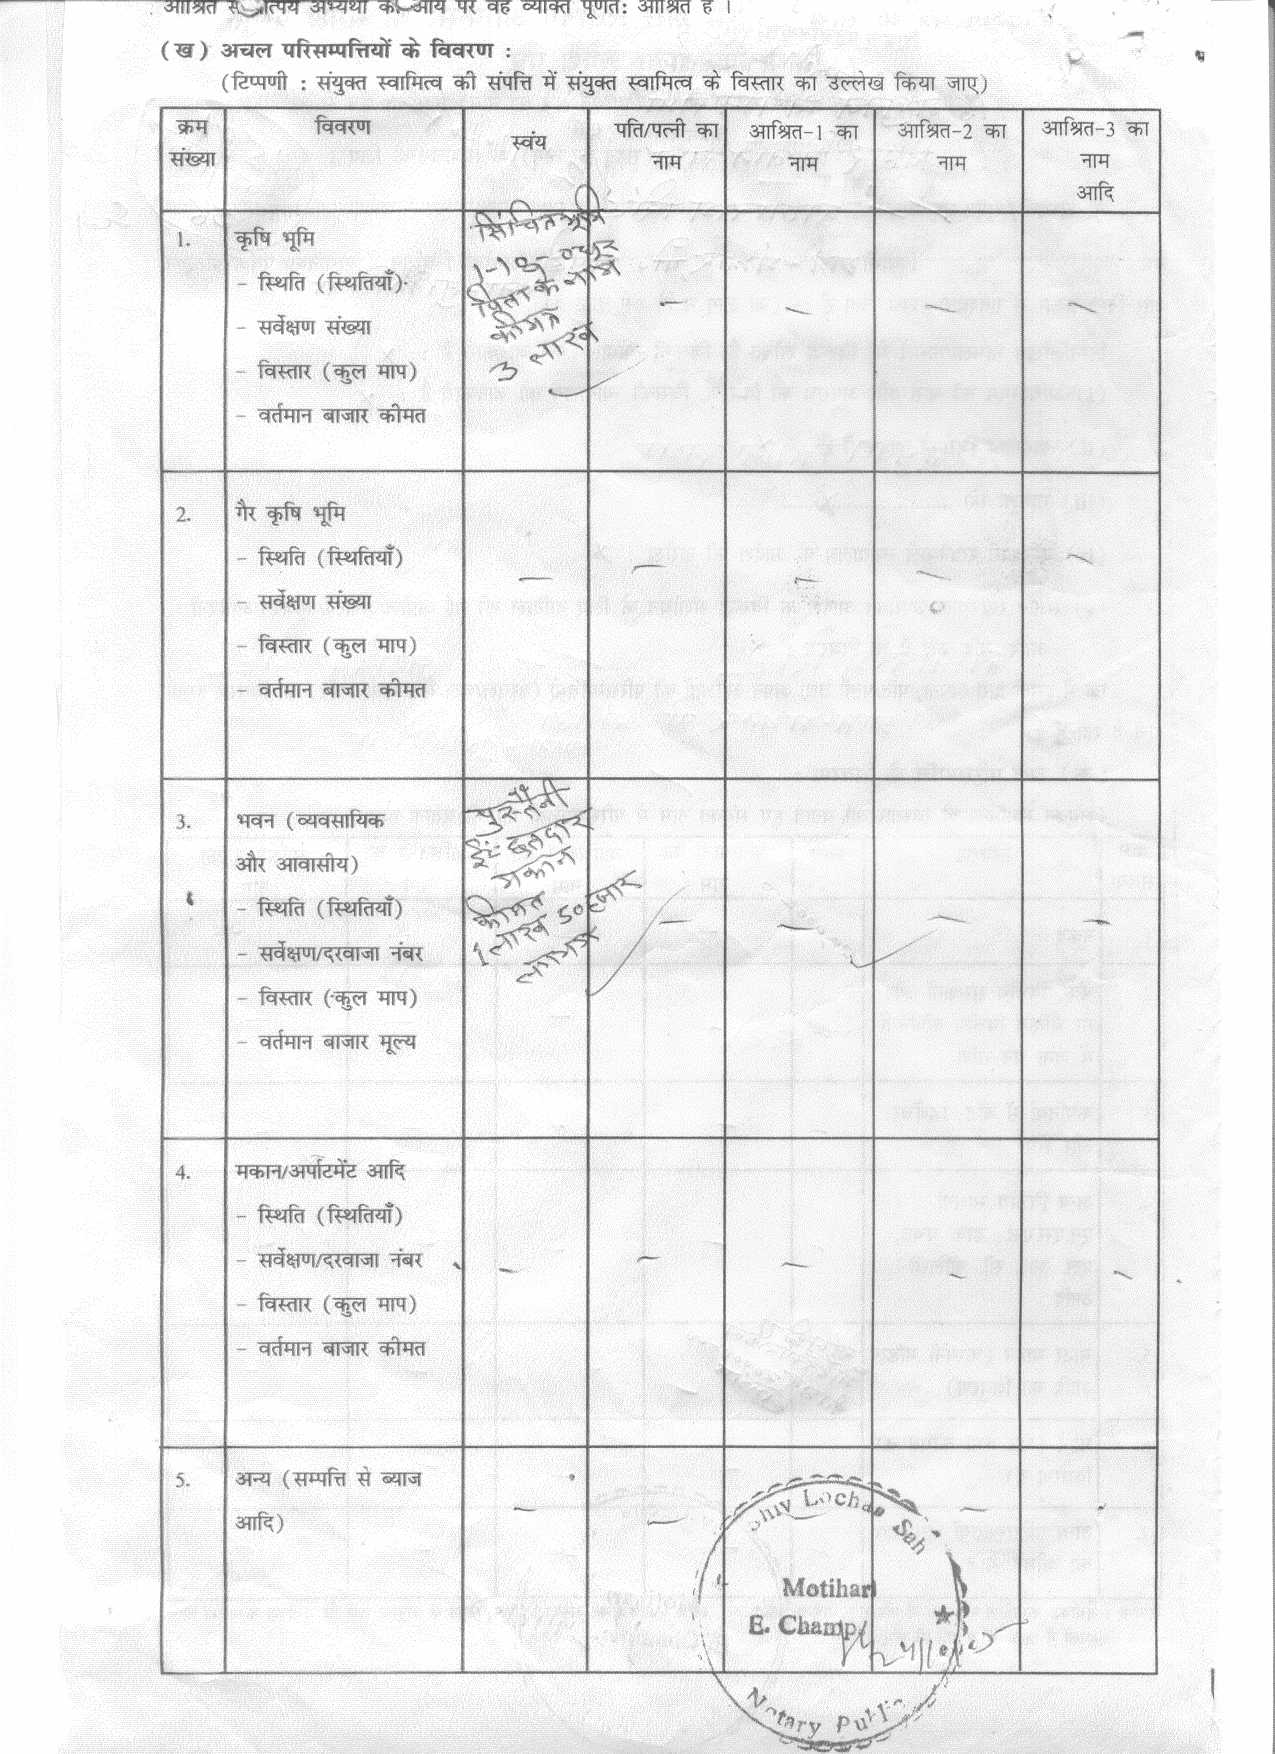 आश्रित से तात्पर्य अभ्यर्थी की आय पर वह व्यक्ति पूर्णत: आश्रित है ।
(ख) अचल परिसम्पत्तियों के विवरण :
(टिप्पणी : संयुक्त स्वामित्व की संपत्ति में संयुक्त स्वामित्व के विस्तार का उल्लेख किया जाए)
क्रम संख्या
विवरण
स्वंय
पति/पत्नी का नाम
आश्रित-1 का नाम
आश्रित-2 का नाम
आश्रित-3 का नाम आदि
1.
कृषि भूमि
- स्थिति (स्थितियाँ)
- सर्वेक्षण संख्या
- विस्तार (कुल माप)
- वर्तमान बाजार कीमत
सिंचित भूमि
पिता के नाम
कीमत
3 लाख
2.
गैर कृषि भूमि
- स्थिति (स्थितियाँ)
- सर्वेक्षण संख्या
- विस्तार (कुल माप)
- वर्तमान बाजार कीमत
3.
भवन (व्यवसायिक
और आवासीय)
- स्थिति (स्थितियाँ)
- सर्वेक्षण/दरवाजा नंबर
- विस्तार (कुल माप)
- वर्तमान बाजार मूल्य
पुस्तैनी
ईंट छतदार
मकान
कीमत
1 लाख 50 हजार
लगभग
4.
मकान/अर्पाटमेंट आदि
- स्थिति (स्थितियाँ)
- सर्वेक्षण/दरवाजा नंबर
- विस्तार (कुल माप)
- वर्तमान बाजार कीमत
5.
अन्य (सम्पत्ति से ब्याज
आदि)
Shiv Lochan Sah
Motihari
E. Champ.
Notary Public